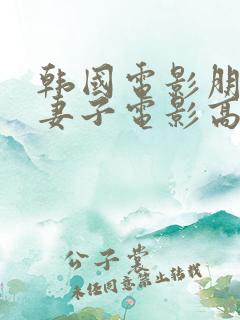 韩国电影朋
妻子电影高
公子裳
未经同意禁止转载